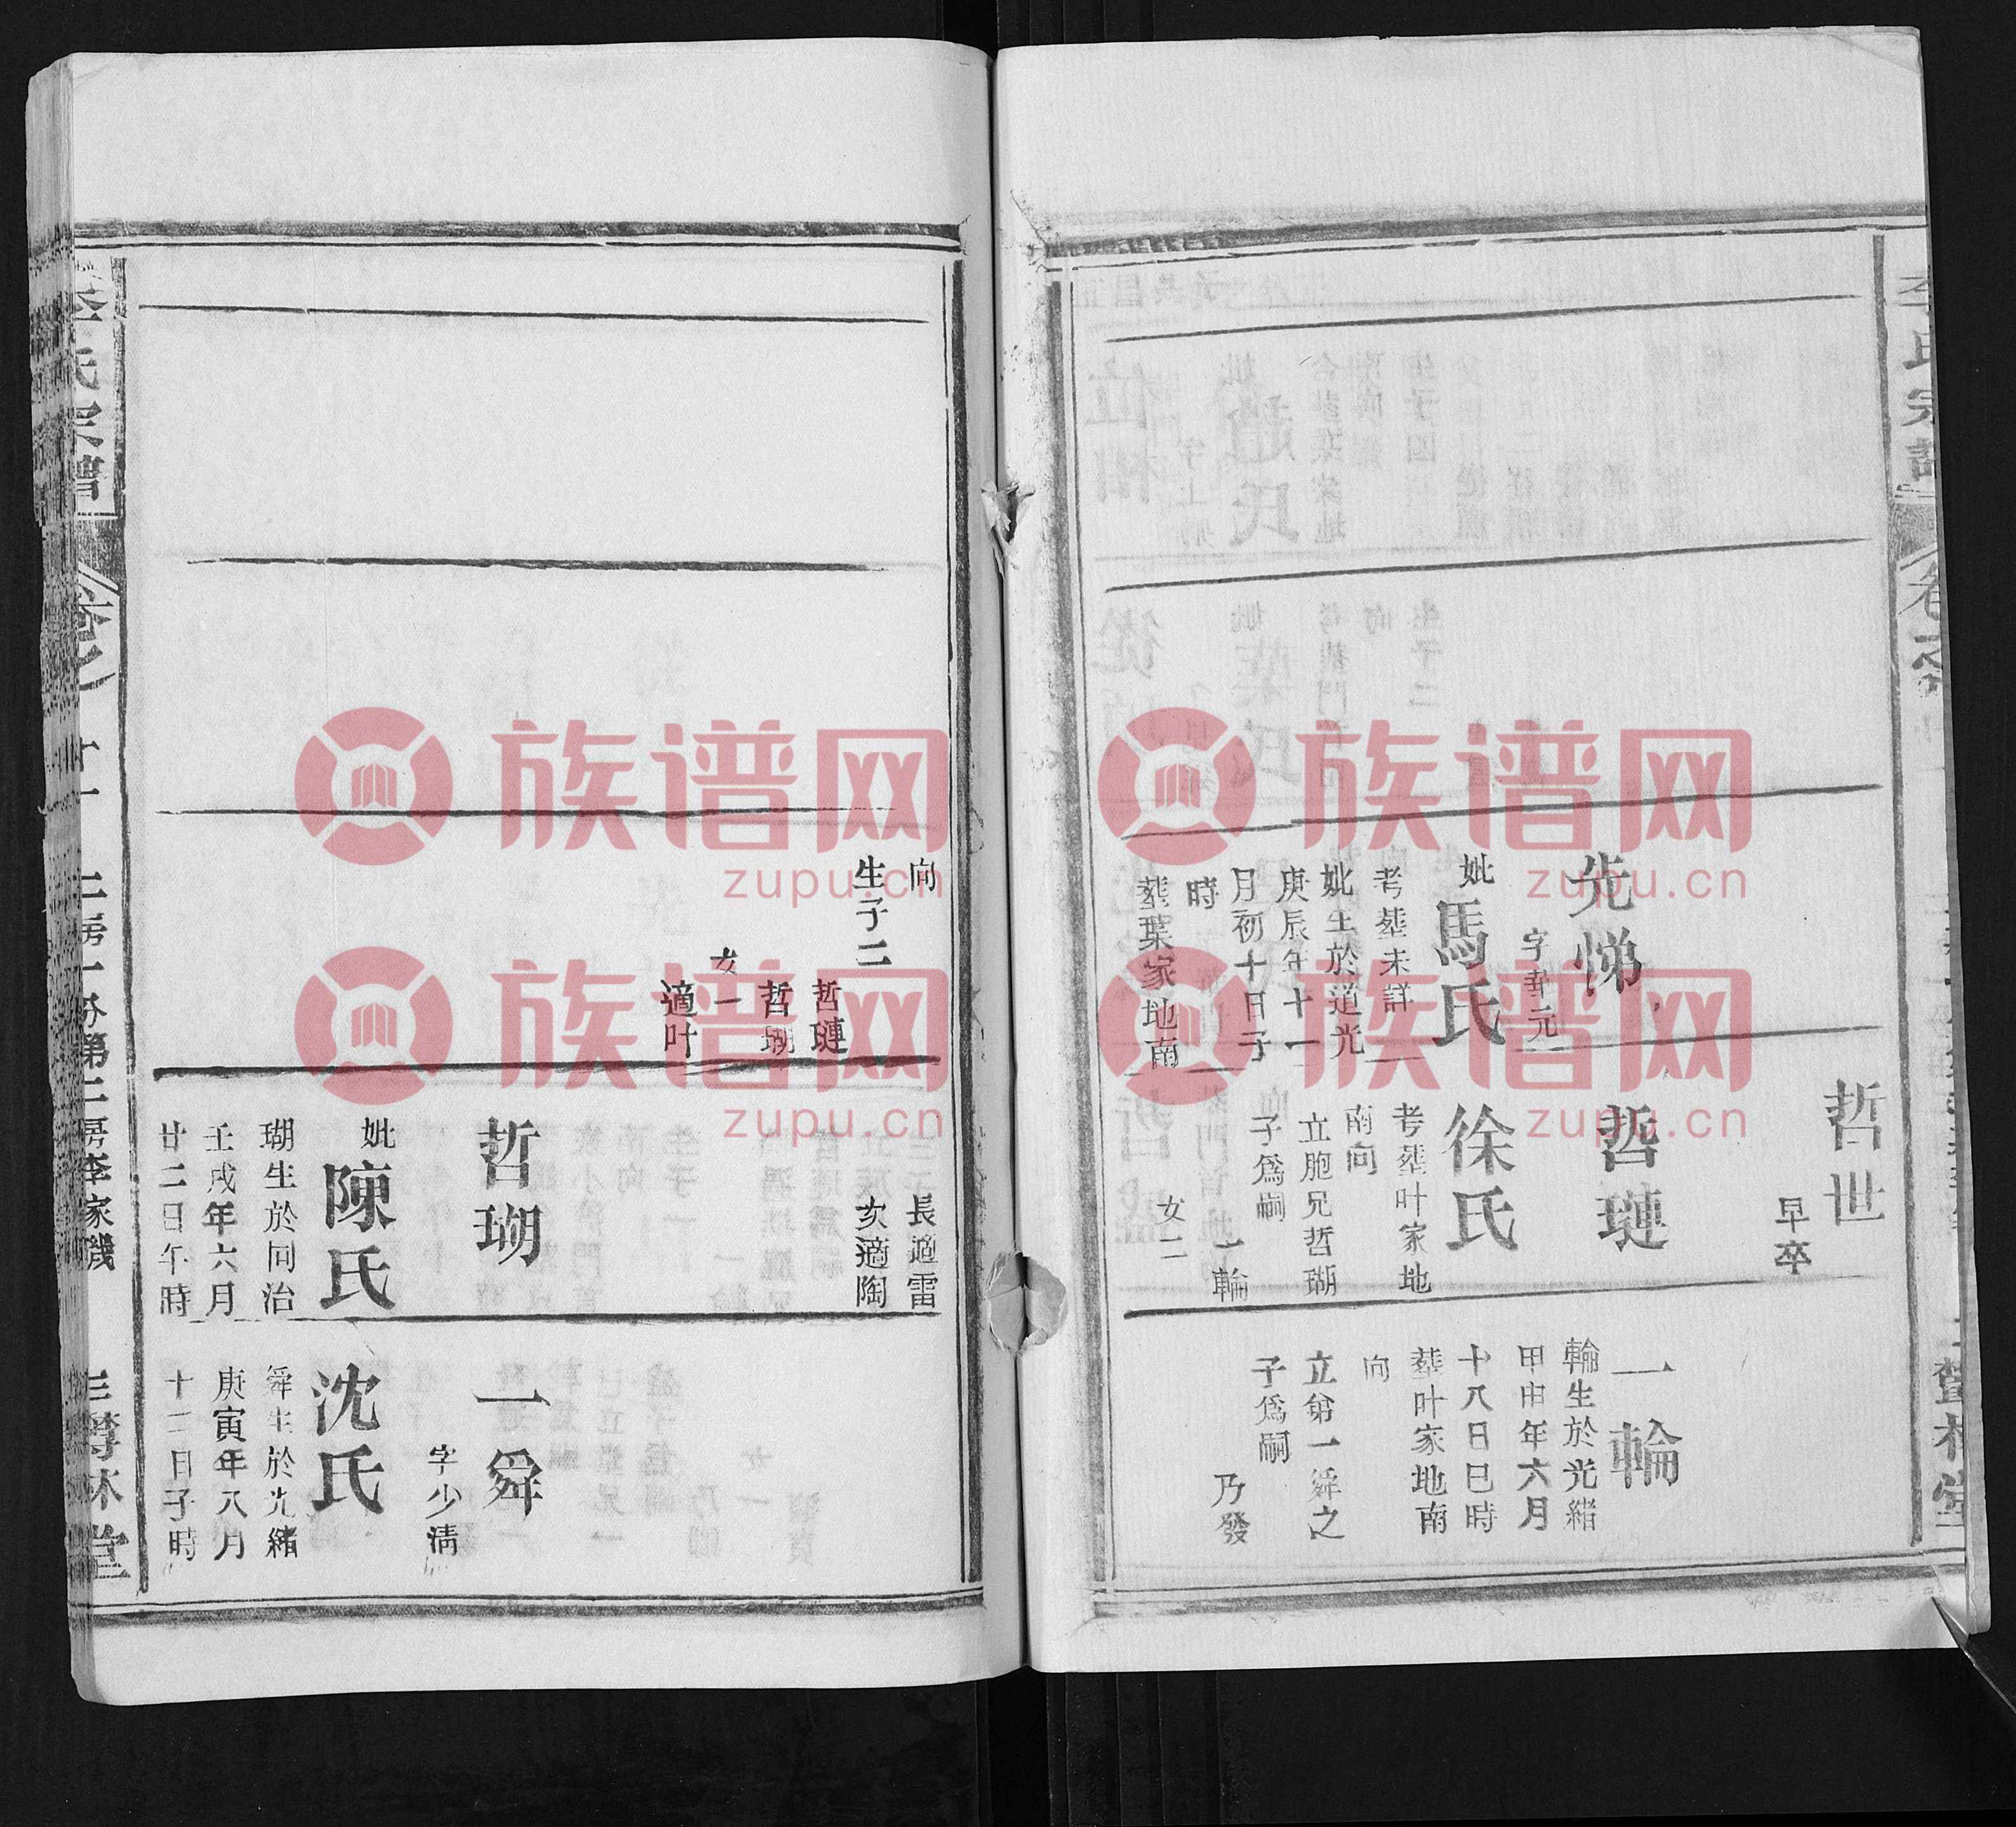 哲世
早卒
先悌
字華元
妣
馬氏
考塟未詳
妣生於道光
庚辰年十一
月初十日子
時
塟葉家地南
哲璉
徐氏
考塟叶家地
南向
立胞兄哲瑚
子爲嗣
一輪
女二
一輪
輪生於光緒
甲申年六月
十八日巳時
塟叶家地南
向
立弟一舜之
子爲嗣
乃發
向
生子二
哲璉
哲瑚
女一
適叶
長適雷
次適陶
哲瑚
妣
陳氏
瑚生於同治
壬戌年六月
廿二日午時
一舜
字少清
沈氏
舜生於光緒
庚寅年八月
十二日子時
李氏宗譜
二房一分第二房李家磯
堂
族谱网
zupu.cn
族谱网
zupu.cn
族谱网
zupu.cn
族谱网
zupu.cn